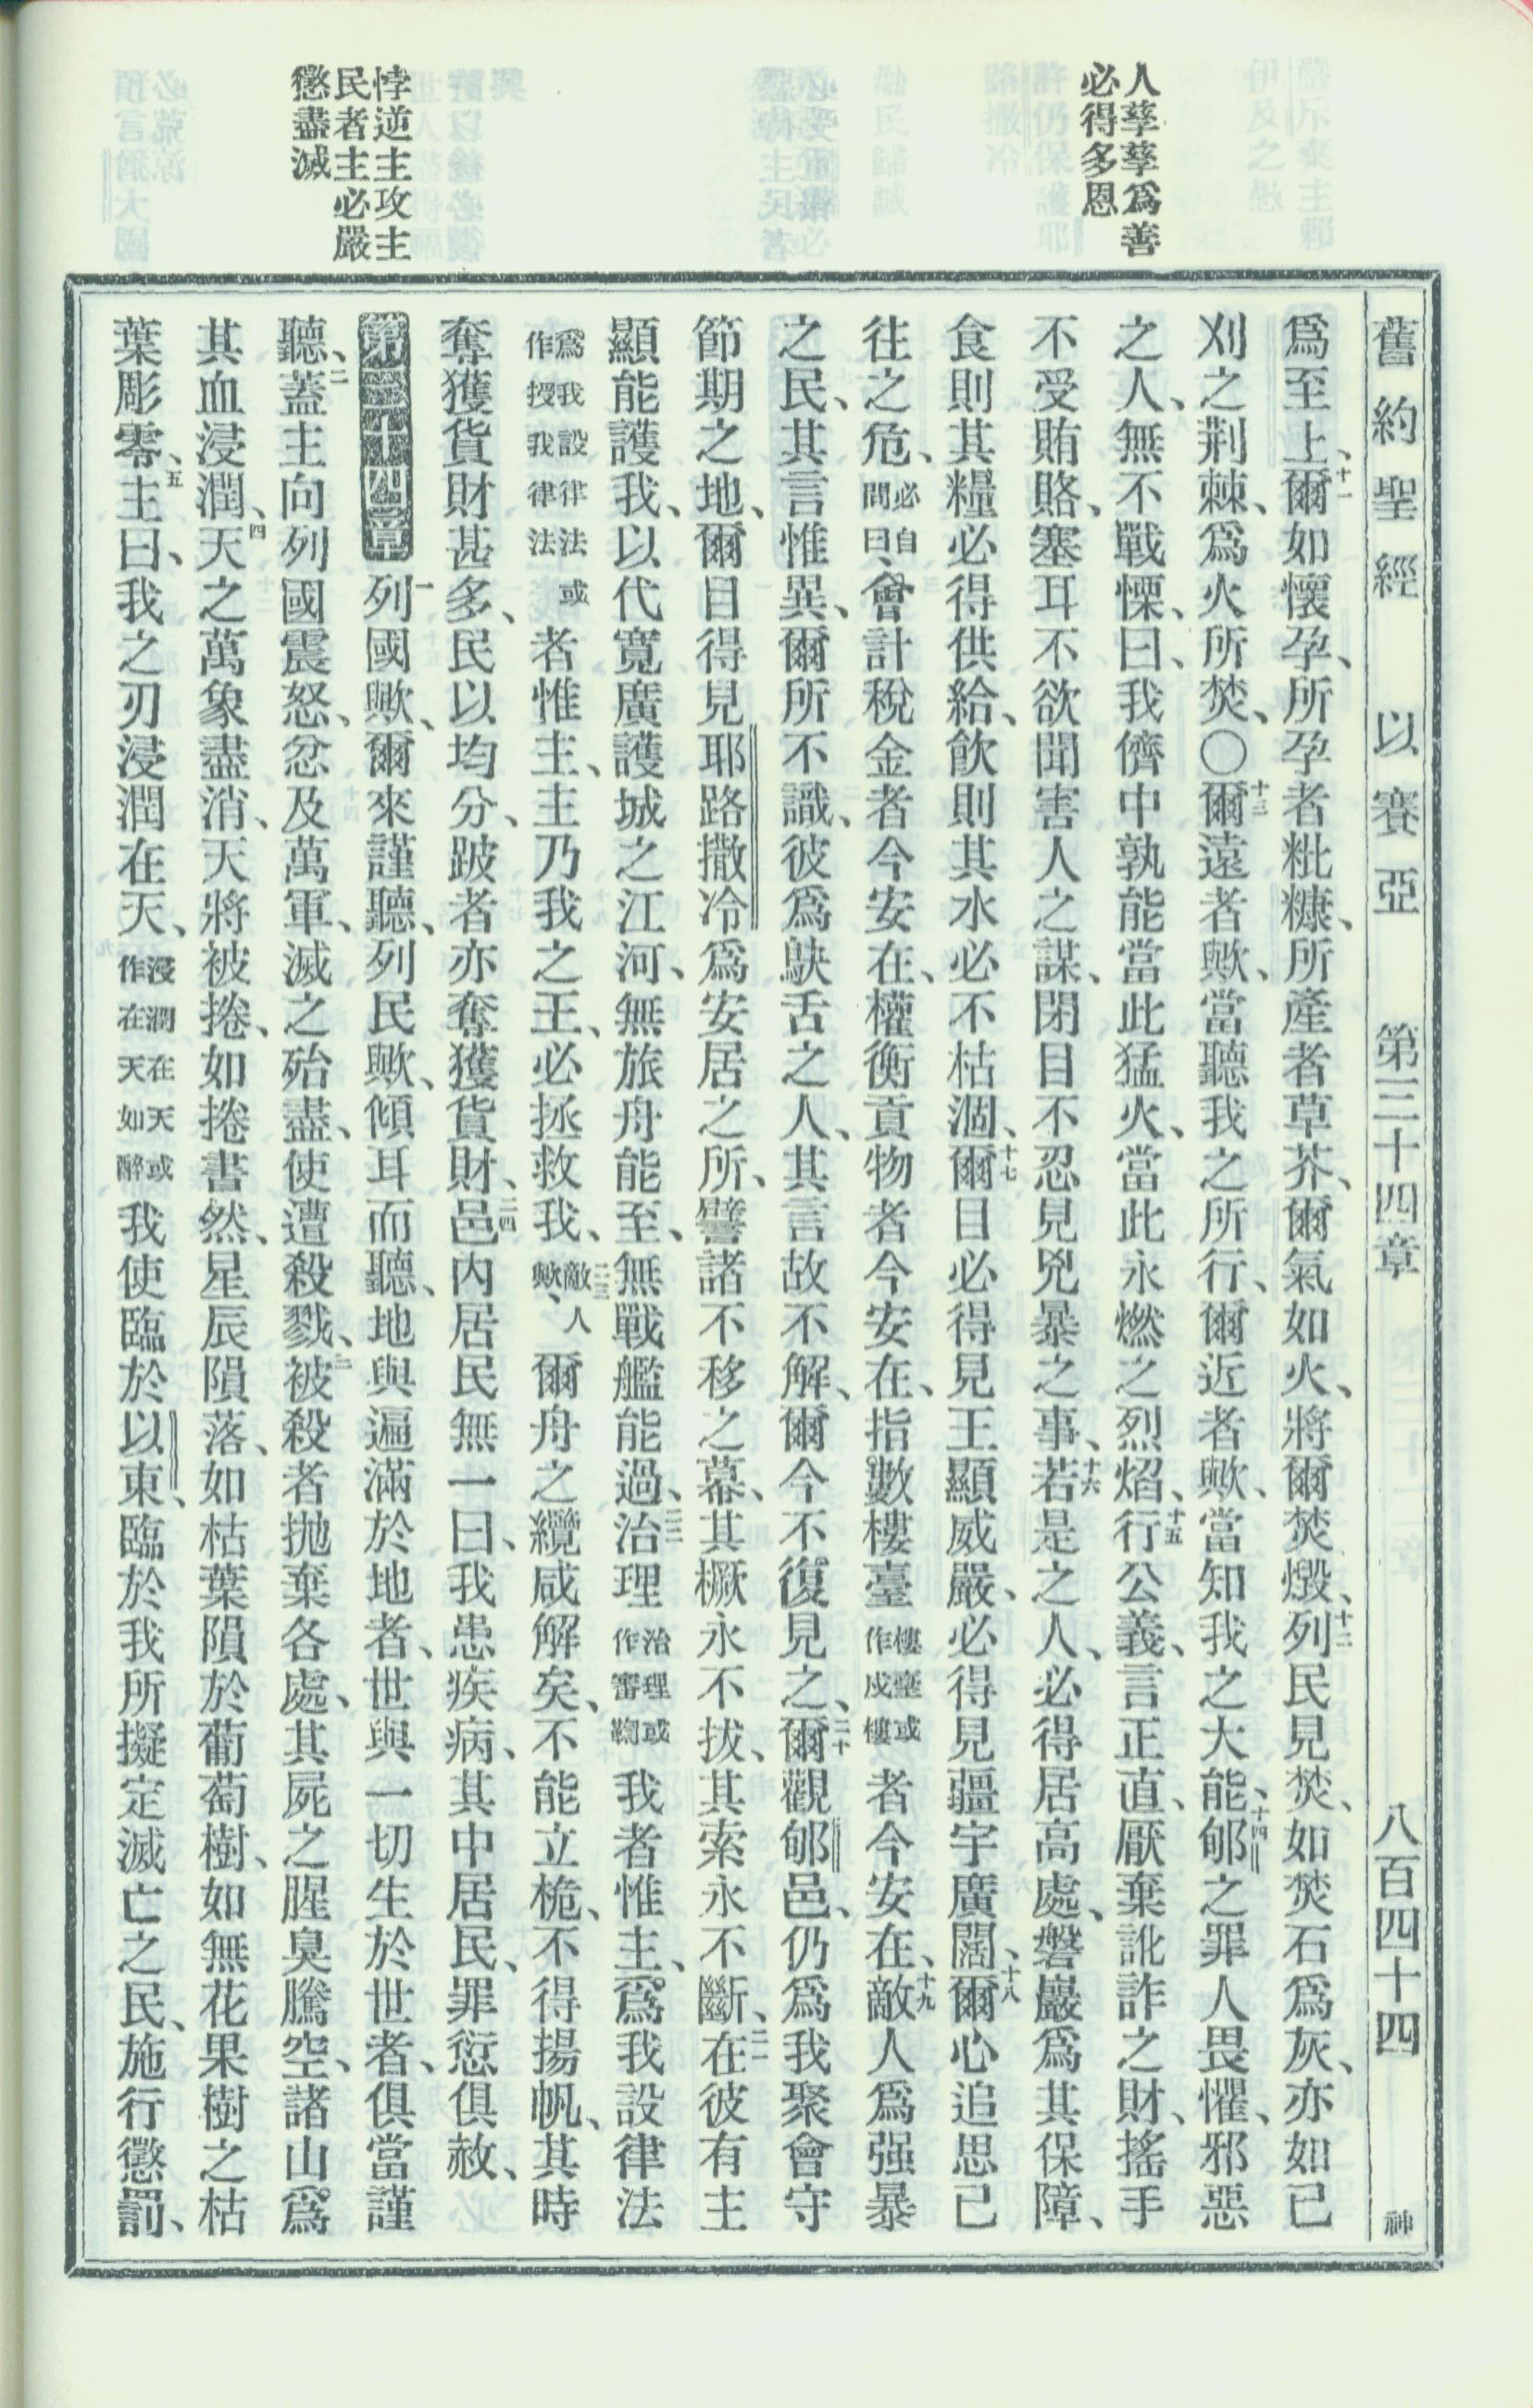 人孳孳爲善
必得多恩
悖逆主攻主
民者主必嚴
懲盡滅
舊約聖經 以賽亞 第三十四章 八百四十四 神
爲至上、十一爾如懷孕、所孕者粃糠、所產者草芥、爾氣如火、將爾焚燬、十二列民見焚、如焚石爲灰、亦如已
刈之荆棘、爲火所焚、〇十三爾遠者歟、當聽我之所行、爾近者歟、當知我之大能、十四郇之罪人畏懼、邪惡
之人、無不戰慄、曰、我儕中孰能當此猛火、當此永燃之烈熖、十五行公義、言正直、厭棄訛詐之財、搖手
不受賄賂、塞耳不欲聞害人之謀、閉目不忍見兇暴之事、十六若是之人、必得居高處、磐巖爲其保障、
食則其糧必得供給、飲則其水必不枯涸、十七爾目必得見王顯威嚴、必得見疆宇廣闊、十八爾心追思已
往之危、必自問曰、會計稅金者今安在、權衡貢物者今安在、指數樓臺樓臺或作戍樓者今安在、十九敵人爲强暴
之民、其言惟異、爾所不識、彼爲鴃舌之人、其言故不解、爾今不復見之、二十爾觀郇邑、仍爲我聚會守
節期之地、爾目得見耶路撒冷爲安居之所、譬諸不移之幕、其橛永不拔、其索永不斷、二一在彼有主
顯能護我、以代寬廣護城之江河、無旅舟能至、無戰艦能過、二二治理治理或作審鞫我者惟主、爲我設律法
爲我設律法或作授我律法者惟主、主乃我之王、必拯救我、二三敵人歟、爾舟之纜咸解矣、不能立桅、不得揚帆、其時
奪獲貨財甚多、民以均分、跛者亦奪獲貨財、二四邑內居民無一曰、我患疾病、其中居民、罪愆俱赦、
第三十四章 一列國歟、爾來謹聽、列民歟、傾耳而聽、地與遍滿於地者、世與一切生於世者、俱當謹
聽、二蓋主向列國震怒、忿及萬軍、滅之殆盡、使遭殺戮、三被殺者拋棄各處、其屍之腥臭騰空、諸山爲
其血浸潤、四天之萬象盡消、天將被捲、如捲書然、星辰隕落、如枯葉隕於葡萄樹、如無花果樹之枯
葉彫零、五主曰、我之刃浸潤在天、浸潤在天或作在天如醉我使臨於以東、臨於我所擬定滅亡之民、施行懲罰、